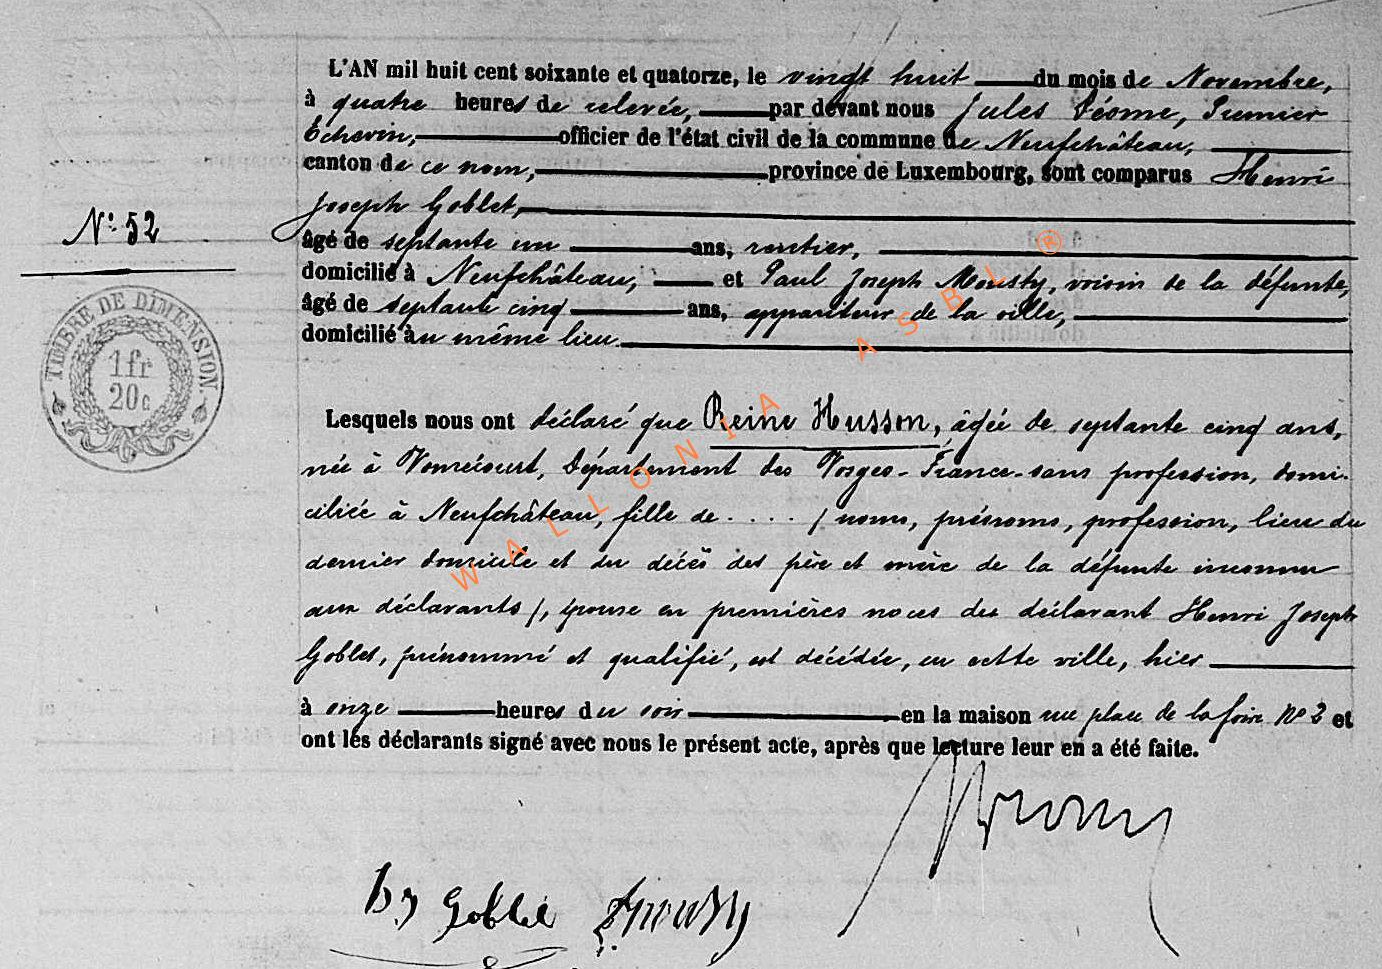 L'AN mil huit cent soixante et quatorze, le vingt huit du mois de Novembre,
à quatre heures de relevée, par devant nous Jules Déome, Premier
Echevin, officier de l'état civil de la commune de Neufchâteau,
canton de ce nom, province de Luxembourg, sont comparus Henri
Joseph Goblet,
N° 52
âgé de septante un ans, rentier,
domicilié à Neufchâteau, et Paul Joseph Mousty, voisin de la défunte,
âgé de septante cinq ans, appariteur de la ville,
domicilié au même lieu
TIMBRE DE DIMENSION.
1fr
20c
WALLONIA ASBL ®
Lesquels nous ont déclaré que Reine Husson, âgée de septante cinq ans,
née à Vomécourt, Département des Vosges - France - sans profession, domi-
ciliée à Neufchâteau, fille de .... / noms, prénoms, profession, lieu du
dernier domicile et du décès des père et mère de la défunte inconnu
aux déclarants /, épouse en premières noces du déclarant Henri Joseph
Goblet, prénommé et qualifié, est décédée, en cette ville, hier
à onze heures du soir en la maison rue place de la foire N° 2 et
ont les déclarants signé avec nous le présent acte, après que lecture leur en a été faite.
Goblet Mousty